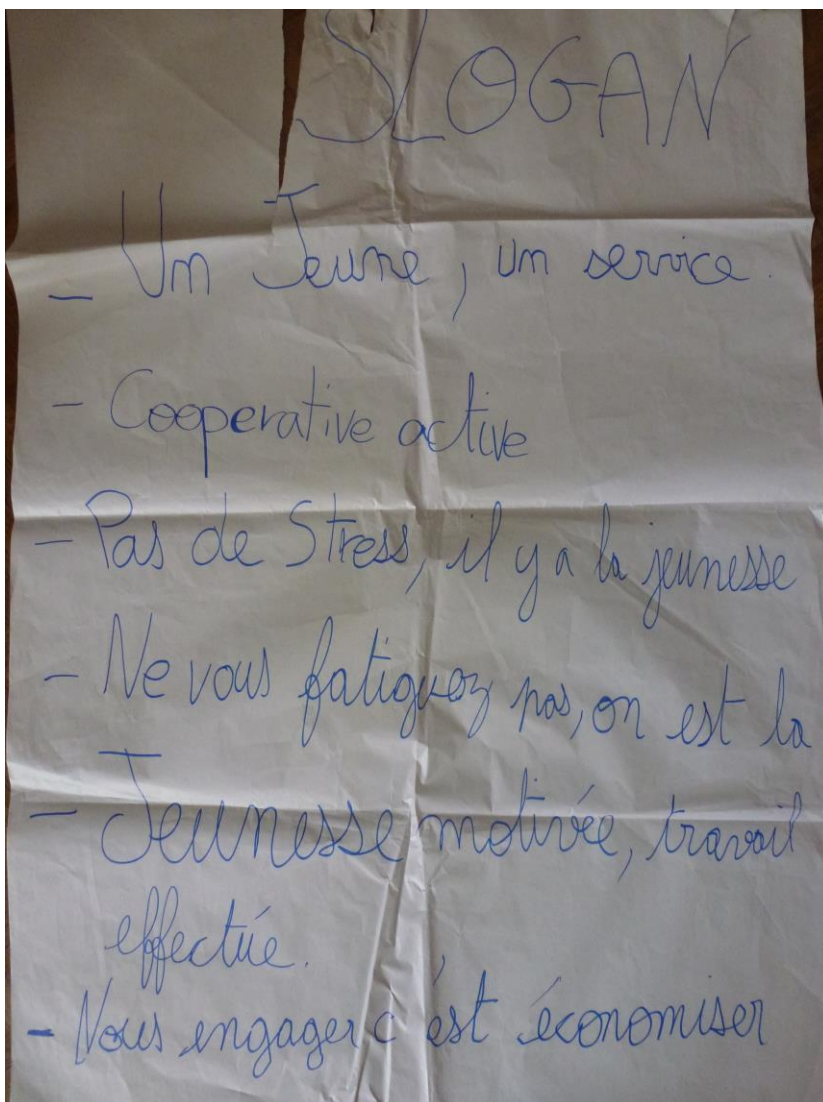 SLOGAN
- Un Jeune, un service.
- Cooperative active
- Pas de Stress, il y a la jeunesse
- Ne vous fatiguez pas, on est la
- Jeunesse motivée, travail
effectuée.
- Nous engager c'est économiser